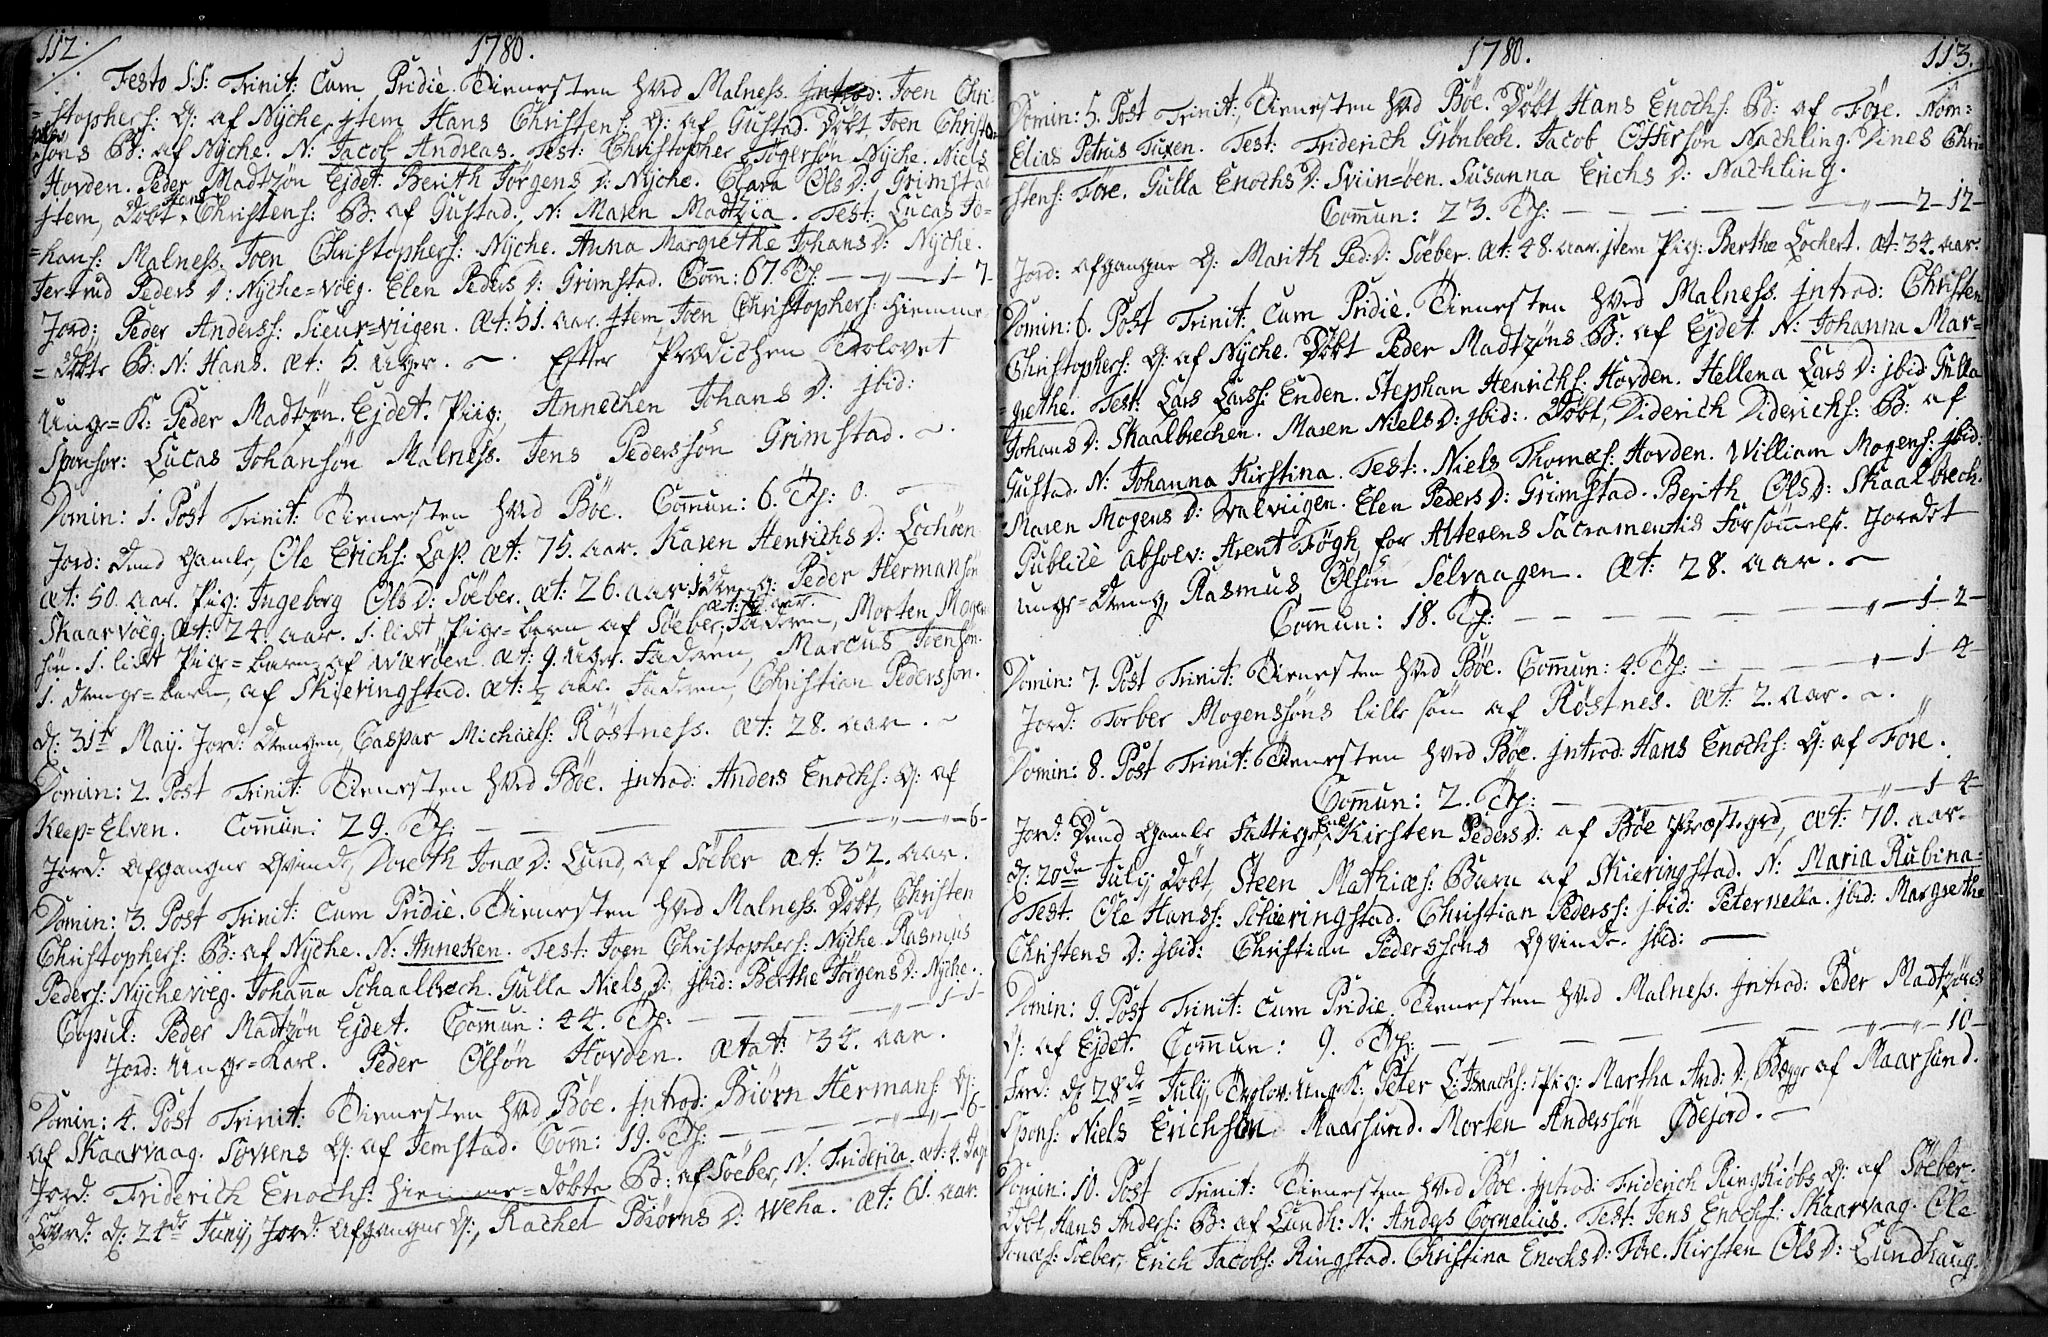 112.
1780.
Festo S:S: Trinit: Cum Pridiè. Tienesten hved Malness. Introd: Joen Chri
=stophers: Q: af Nyche, jtem Hans Christens: Q: af Gustad. Döbt Joen Christo-
phers
søns B: af Nyche. N: Jacob Andreas. Test: Christopher Jøgersøn Nyche. Niels
Hovden. Peder Madtzøn Ejdet. Berith Jørgens D: Nyche. Clara Ols D: Grimstad
jtem, Döbt Hans Christens: B: af Gustad. N: Maren Madtzia. Test: Lucas Jo-
=hans: Malness. Joen Christophers: Nyche. Anna Margrethe Johans D: Nyche.
Jertrud Peders D: Nyche=voeg. Elen Peders D: Grimstad. Com: 67. Ps: — „ — 1 - 7
Jord: Peder Anderss: Sieur=viigen. Æt: 51. aar. jtem, Joen Christophers: hiemme
=döbte B: N: Hans. æt: 5. uger. ~ Efter Prædichen Trolovet
Unge=K: Peder Madtzøn. Ejdet. Piig: Annechen Johans D: jbid:
Sponsor: Lucas Johansøn Malness. Jens Pederssøn Grimstad. ~.
Domin: 1. Post Trinit: Tienesten hved Böe. Commun: 6. Ps: 0.
Jord: Dend Gamle, Ole Erichs: Lap. æt: 75. aar. Karen Henrichs D: Lochöen
æt: 50. aar. Pig: Ingeborg Ols D: Söeber. æt: 26. aar. Peder Hermansøn
Skaarvoeg. æt: 24. aar. 1. lidt Pige=barn af Söeber. Faderen, Morten Mogen
søn. 1. lidt Pige=barn af Wærøen. æt: 9. uger. Faderen, Marcus Joensøn.
1. drenge=barn, af Skieringstad. æt: ½ aar. Faderen, Christian Pederssøn.
D: 31te May. Jord: drengen, Caspar Michaels: Röstness. æt: 28. aar. ~
Domin: 2. Post Trinit: Tienesten hved Böe. Introd: Anders Enochs: Q: af
Klep=Elven. Commun: 29. Ps: — „ — „ — 6-
Jord: afgangne Qvinde, Doreth Jonæ D: Lund, af Söeber æt: 32. aar.
Domin: 3. Post Trinit: Cum Pridiè. Tienesten hved Malness. Döbt, Christen
Christophers: B: af Nyche. N: Anneken. Test: Joen Christophers: Nyche. Rasmus
Peders: Nychevoeg. Johanna Schaalbrech. Gulla Niels D: jbid: Berthe Jörgens D: Nyche.
Copul: Peder Madtzøn Ejdet. Commun: 44. Ps: — „ — 1-1-
Jord: Unge=Karl. Peder Olsøn Hovden. Ætat: 34. aar.
Domin: 4. Post Trinit: Tienesten hved Böe. Introd: Biörn Hermans: Q:
af Skaarvaag. Sörens Q: af Jemstad. Com: 19. Ps: — „ — „ — 6-
Jord: Friderich Enochs: hiemme=döbte B: af Söeber, N: Friderica. æt: 4. Dage
D: 24de Junij, Jord: afgangne Q:, Rachel Biörns D: Weha. æt: 61. aar.
1780.
113.
Domin: 5. Post Trinit: Tienesten hved Böe. Döbt Hans Enochs: B: af Före. Nom:
Elias Petrus Tuxen. Test: Friderich Grönbech. Jacob Offersøn Nachling. Dines Chri-
stens: Före. Gulla Enochs D: Sviin=öen. Susanna Erichs D: Nachling.
Commun: 23. Ps: — „ — 2-12-
Jord: afgangne Q: Marith Ped: D: Söeber. æt: 48. aar. jtem Pig: Berthe Lochert. æt: 34. aar.
Domin: 6. Post Trinit: Cum Pridiè. Tienesten hved Malness. Introd: Christen
Christophers: Q: af Nyche. Döbt Peder Madtzøns B: af Ejdet N: Johanna Mar-
=grethe. Test: Lars Larss: Enden. Stephan Henrichs: Hovden. Hellena Lars D: jbid. Gulla
Johans D: Skaalbrechen. Maren Niels D: jbid:. Döbt, Diderich Diderichs: B: af
Gustad. N: Johanna Kirstina. Test: Niels Thomæs: Hovden. William Mogens: jbid:
Maren Mogens D: Svalviigen. Elen Peders D: Grimstad. Berith Ols D: Skaalbrech.
Publicè absolv: Arent Fögh, for Alterens Sacramentis Forsömmelse. Jordet
unge=dreng, Rasmus Olsøn Selvaagen. Æt: 28. aar. ~
Commun: 18. Ps: — „ — 1-2-
Domin: 7. Post Trinit: Tienesten hved Böe. Commun: 4. Ps: — „ — 1 4-
Jord: Torber Mogenssøns lille søn af Röstnes. æt: 2. aar. ~.
Domin: 8. Post Trinit: Tienesten hved Böe. Introd: Hans Enochs: Q: af Före.
Commun: 2. Ps: — „ — 1 4-
Jord: Dend Gamle Fattige Enke Kirsten Peders D: af Böe Præstegrd, æt: 70. aar.
D: 20de July Döbt, Steen Mathiæs: Barn af Skieringstad. N: Maria Rubina.
Test: Ole Hanss: Schieringstad. Christian Pederss: jbid: Peternella. jbid: Margrethe
Christens D: jbid: Christian Pederssøns Qvinde. jbid: —
Domin: 9. Post Trinit: Cum Pridie. Tienesten hved Malness. Introd: Peder Madtzöns
Q: af Ejdet. Commun: 9. Ps: — „ — „ — 10-
D: 28de July, Trolov: Unge K: Peter L: Pig: Martha And: D: Begge af Maarsund.
Spons: Niels Erichsøn Maarsund. Morten Anderssøn Ødejord. —
Domin: 10. Post Trinit: Tienesten hved Böe. Introd: Friderich Ringkiöbs Q: af Söeber.
Döbt, Hans Anders: B: af Lundh: N: Anders Cornelius. Test: Jens Enochs: Skaarvaag. Ole
Jonæs: Söeber, Erich Jacobs: Ringstad. Christina Enochs D: Före. Kirsten Ols D: Lundhaug.